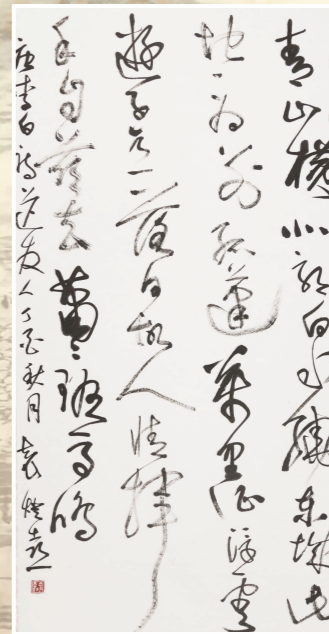 青山横北郭白水繞东城此
地一为别孤蓬萬里征浮雲
遊子意落日故人情揮
手自兹去蕭々班马鸣
唐李白诗送友人丁酉秋月袁